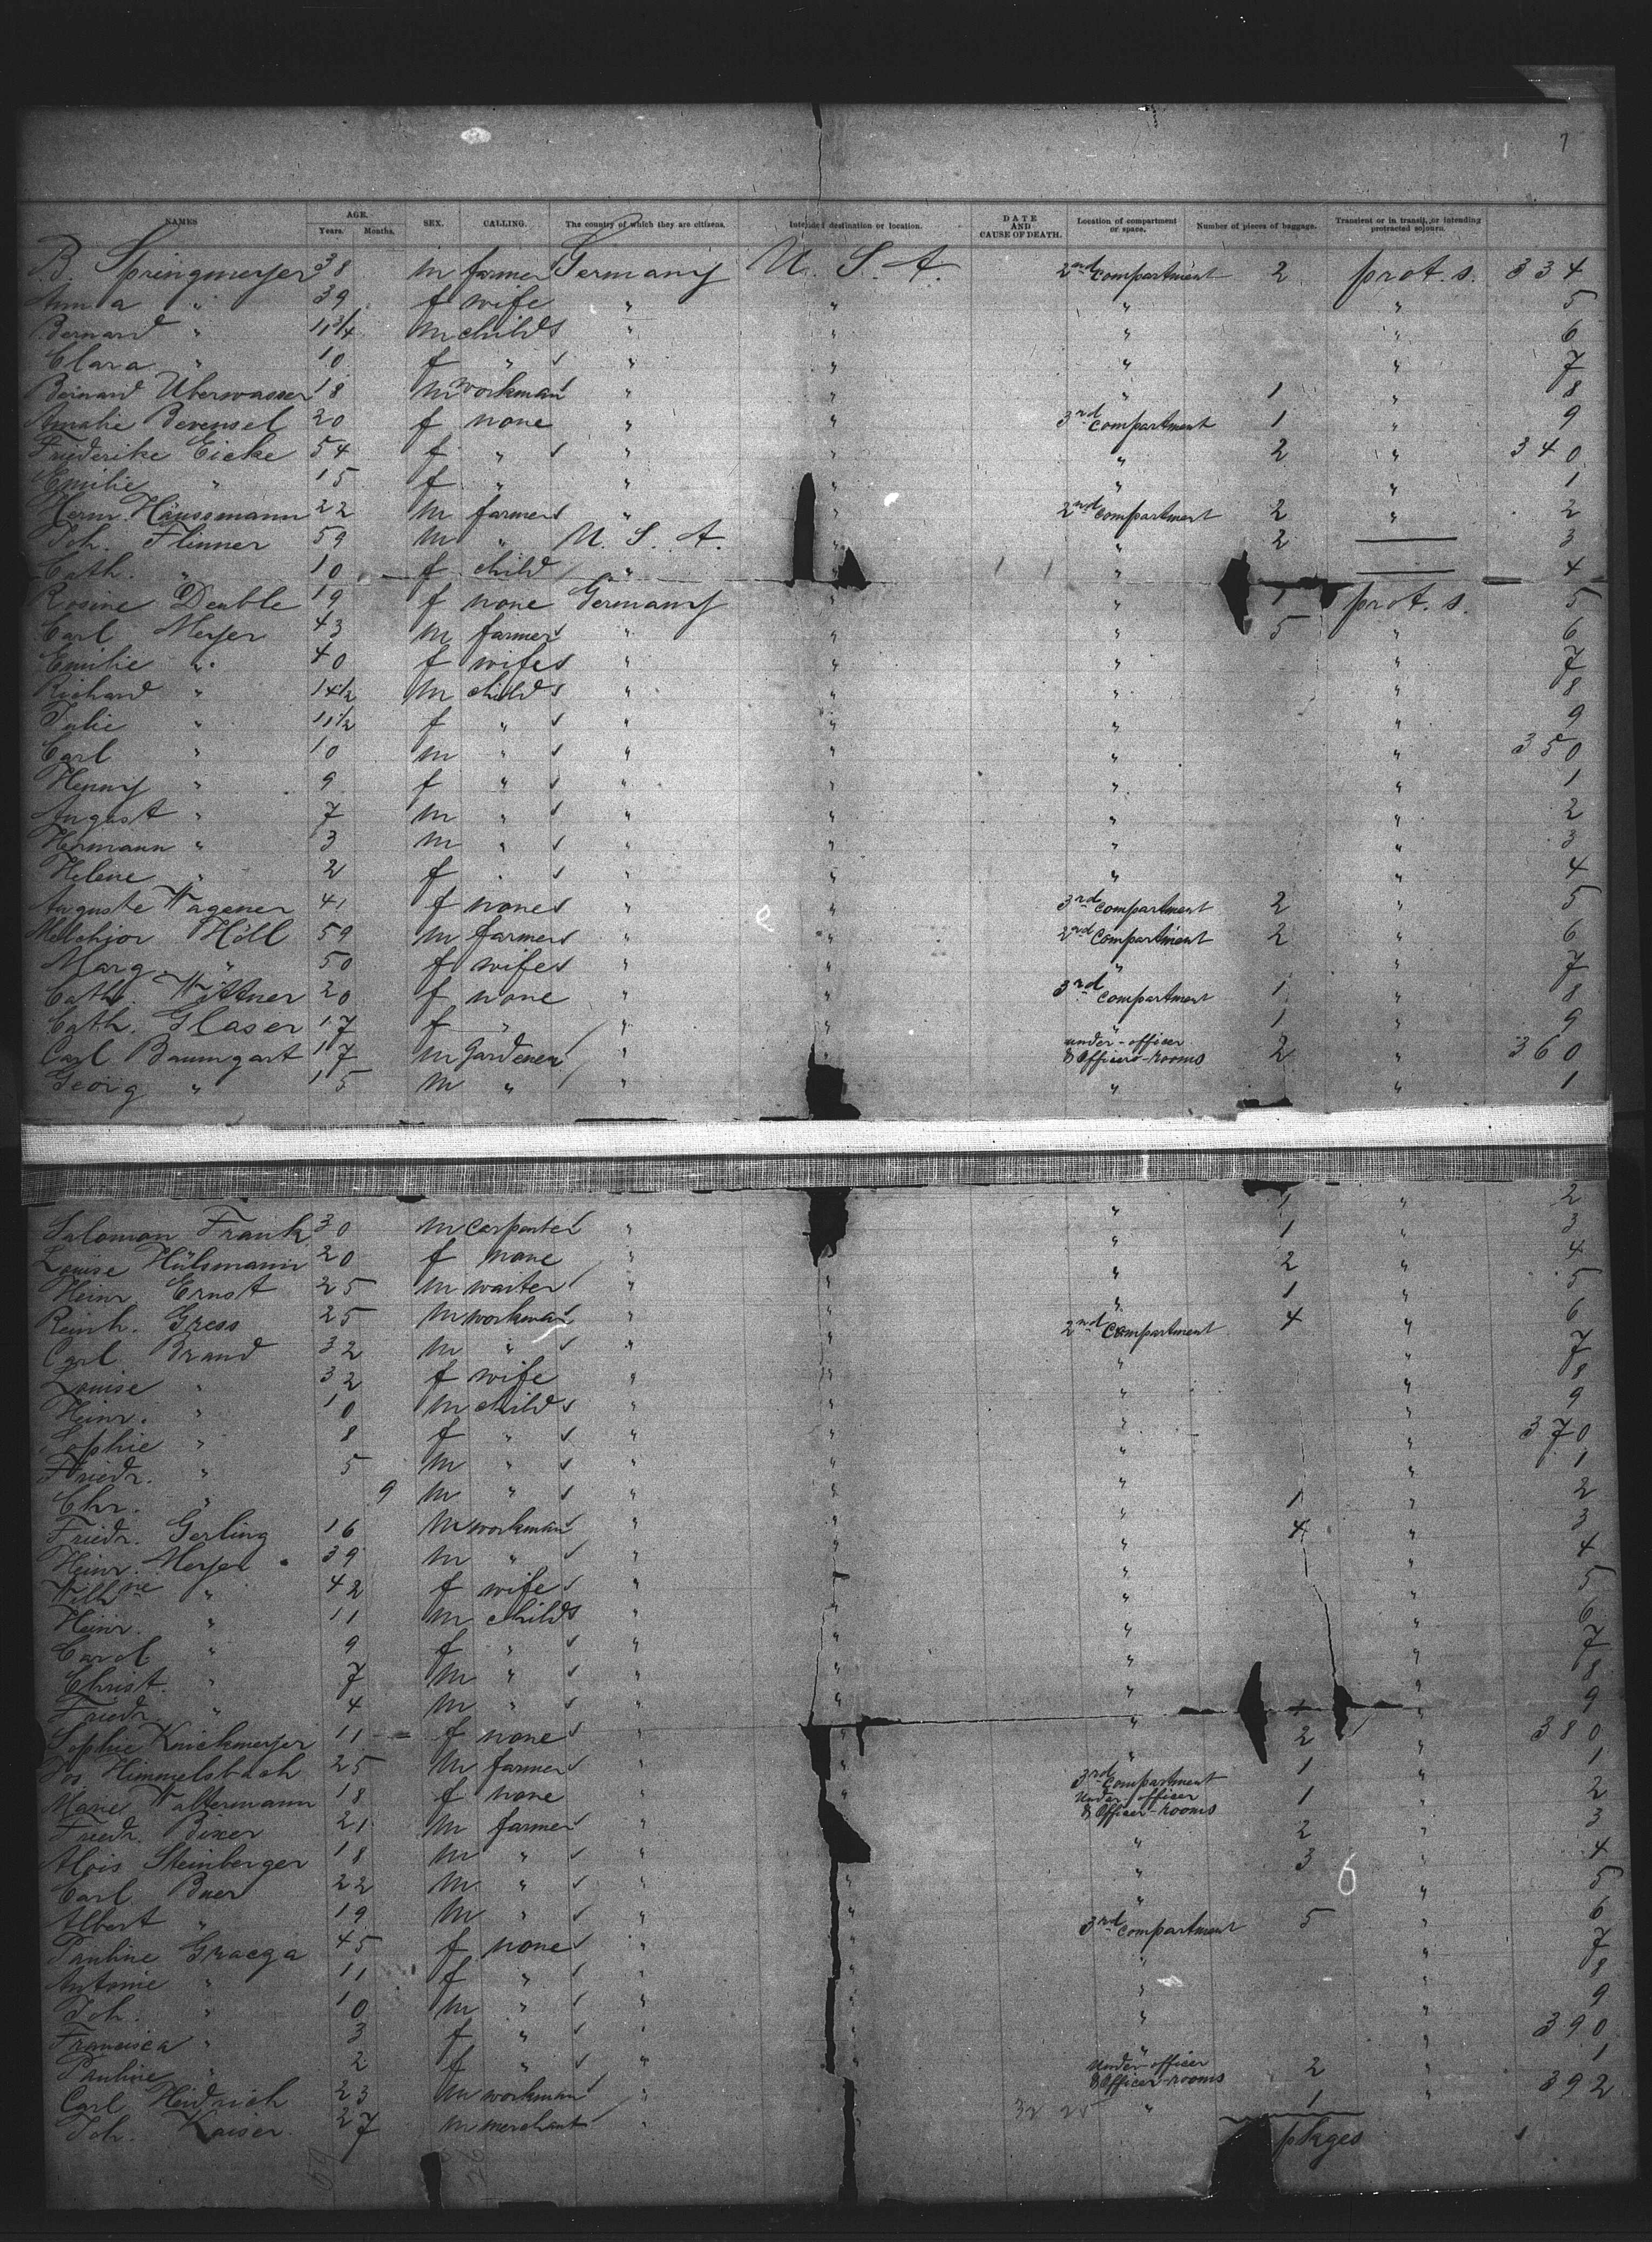 7
NAMES AGE. Years. Months. SEX. CALLING. The country of which they are citizens. Intended destination or location. DATE AND CAUSE OF DEATH. Location of compartment or space. Number of pieces of baggage. Transient or in transit, or intending protracted sojourn.
B. Springmeyer 38 m farmer Germany U. S. A. 2nd compartment 2 prot. s. 334
Anna " 39 f wife " " " " 5
Bernard " 11 3/4 m child " " " " 6
Clara " 10 f " " " " " 7
Bernard Uberwasser 18 m workman " " " 1 " 8
Amalie Bevensel 20 f none " " 3rd compartment 1 " 9
Friederike Eicke 54 f " " " " 2 " 340
Emilie " 15 f " " " " " 1
Herm. Häussmann 22 m farmer " " 2nd compartment 2 " 2
Joh. Flinner 59 m " U. S. A. " " 2 — 3
Cath. " 10 f child " " " — 4
Rosine Deuble 19 f none Germany " " 1 prot. s. 5
Carl Meyer 43 m farmer " " " 5 " 6
Emilie " 40 f wife " " " " 7
Richard " 14 1/2 m child " " " " 8
Julie " 11 1/2 f " " " " " 9
Carl " 10 m " " " " " 350
Henny " 9 f " " " " " 1
August " 7 m " " " " " 2
Hermann " 3 m " " " " " 3
Helene " 2 f " " " " " 4
Auguste Wagener 41 f none " " 3rd compartment 2 " 5
Melchior Höll 59 m farmer " " 2nd Compartment 2 " 6
Marg. " 50 f wife " " " " 7
Cath. Wittner 20 f none " " 3rd compartment 1 " 8
Cath. Glaser 17 f " " " " 1 " 9
Carl Baumgart 17 m Gardener " " under-officer & Officers-rooms 2 " 360
Georg " 15 m " " " " " 1
Salomon Frank 30 m carpenter " " 1 " 2
Louise Hülsmann 20 f none " " 1 " 3
Heinr. Ernst 25 m waiter " " " 2 " 4
Reinh. Gress 25 m workman " " " 1 " 5
Carl Brand 32 m " " " 2nd Compartment 4 " 6
Louise " 32 f wife " " " " 7
Heinr. " 10 m child " " " " 8
Sophie " 8 f " " " " " 9
Friedr. " 5 m " " " " " 370
Chr. " 9 m " " " " " 1
Friedr. Gerling 16 m workman " " " 1 " 2
Heinr. Meyer 39 m " " " " 4 " 3
Wilhne " 42 f wife " " " " 4
Heinr. " 11 m child " " " " 5
Carol. " 9 f " " " " " 6
Christ. " 7 m " " " " " 7
Friedr. " 4 m " " " " " 8
Sophie Knickmeyer 11 f none " " " 1 " 9
Jos. Himmelsbach 25 m farmer " " " 2 " 380
Marie Waltermann 18 f none " " 3rd Compartment 1 " 1
Friedr. Bixer 21 m farmer " " Under-officer & Officer-rooms 1 " 2
Alois Steinberger 18 m " " " " 2 " 3
Carl Baer 22 m " " " " 3 " 4
Albert " 19 m " " " " " 5
Pauline Graega 45 f none " " 3rd Compartment 5 " 6
Antonie " 11 f " " " " " 7
Joh. " 10 m " " " " " 8
Francisca " 3 f " " " " " 9
Pauline " 2 f " " " " " 390
Carl Heidrich 23 m workman " " Under-officer & Officer-rooms 2 " 1
Joh. Kaiser 27 m merchant " " 1 " 392
pkges
6